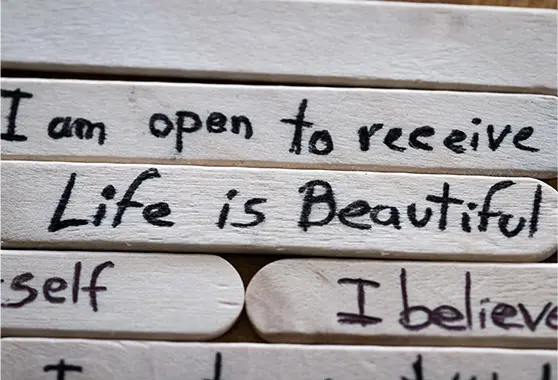 I am open to receive
Life is Beautiful
self
I believe